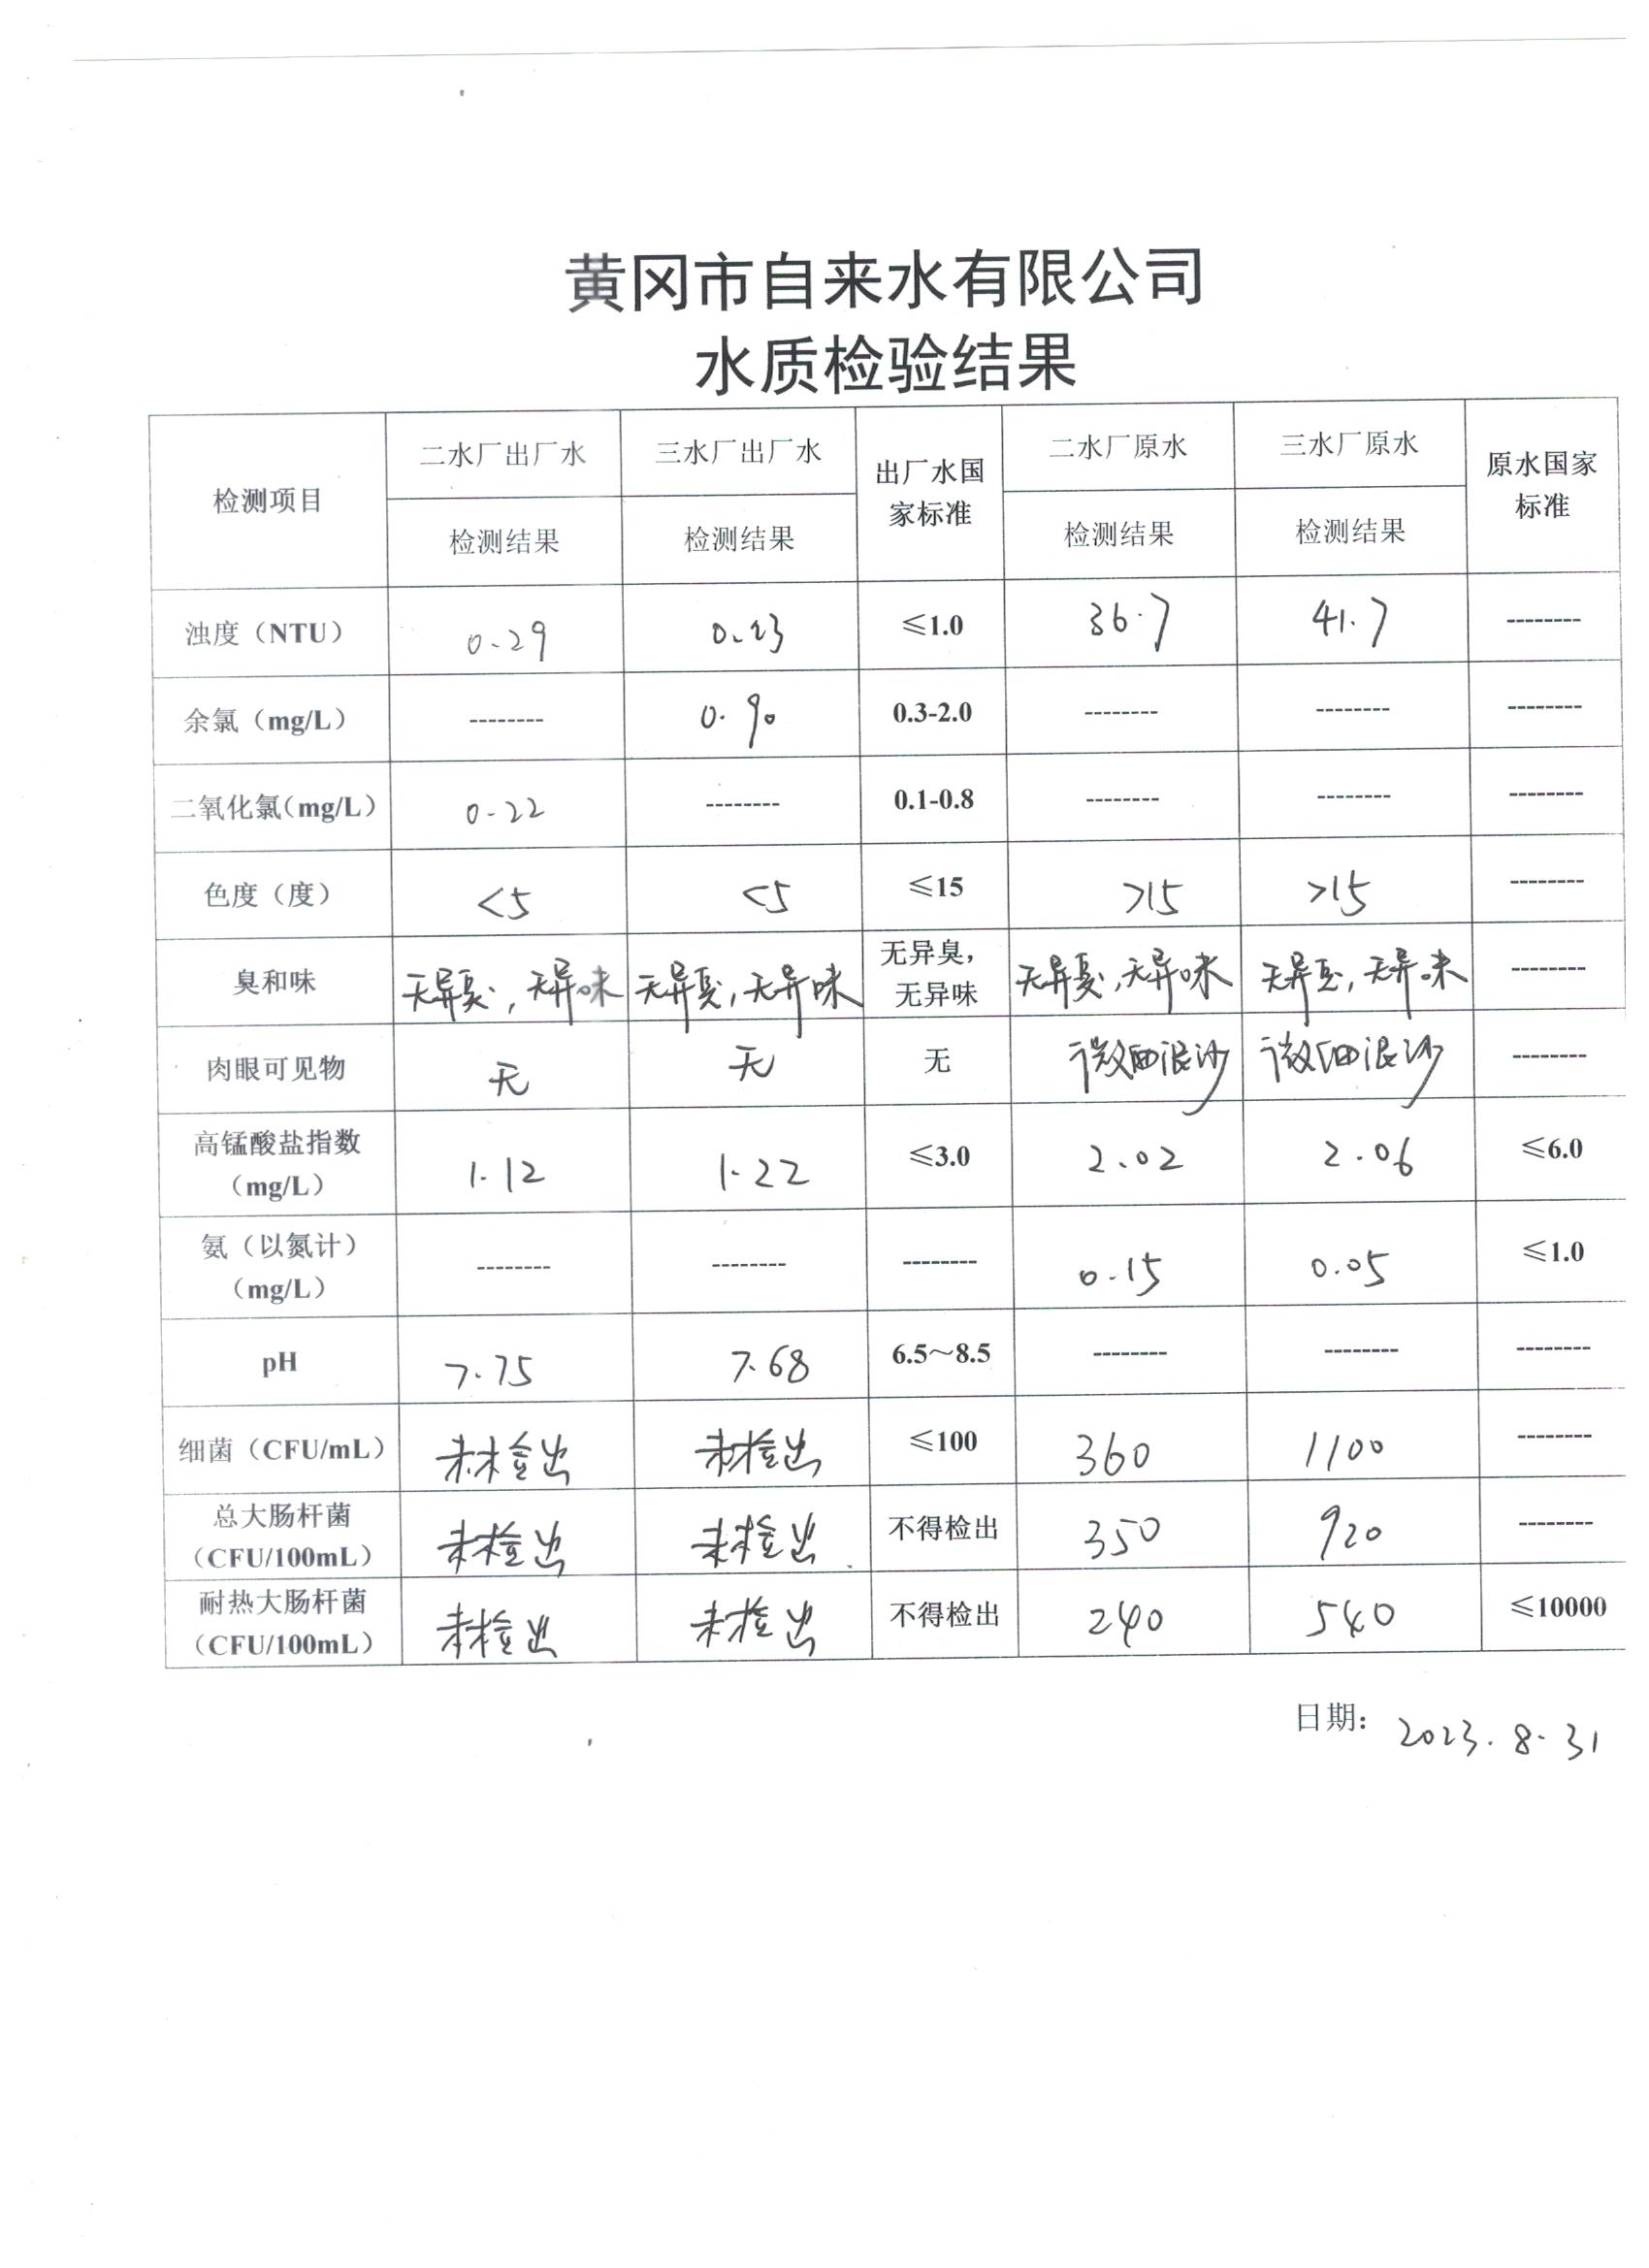 黄冈市自来水有限公司
水质检验结果
检测项目 二水厂出厂水 三水厂出厂水 出厂水国家标准 二水厂原水 三水厂原水 原水国家标准
检测结果 检测结果 检测结果 检测结果
浊度（NTU） 0.29 0.23 ≤1.0 36.7 41.7 --------
余氯（mg/L） -------- 0.90 0.3-2.0 -------- -------- --------
二氧化氯（mg/L） 0.22 -------- 0.1-0.8 -------- -------- --------
色度（度） <5 <5 ≤15 >15 >15 --------
臭和味 无异臭，无异味 无异臭，无异味 无异臭，无异味 无异臭，无异味 无异臭，无异味 --------
肉眼可见物 无 无 无 微细泥沙 微细泥沙 --------
高锰酸盐指数（mg/L） 1.12 1.22 ≤3.0 2.02 2.06 ≤6.0
氨（以氮计）（mg/L） -------- -------- -------- 0.15 0.05 ≤1.0
pH 7.75 7.68 6.5～8.5 -------- -------- --------
细菌（CFU/mL） 未检出 未检出 ≤100 360 1100 --------
总大肠杆菌（CFU/100mL） 未检出 未检出 不得检出 350 920 --------
耐热大肠杆菌（CFU/100mL） 未检出 未检出 不得检出 240 540 ≤10000
日期： 2023.8.31